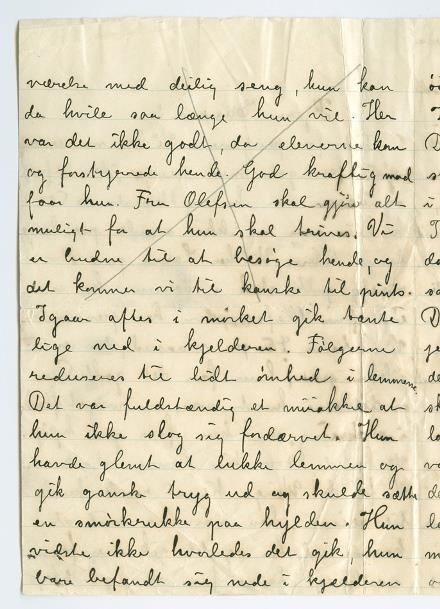 værelse med deilig seng, hun kan
da hvile saa længe hun vil. Her
var det ikke godt, da eleverne kom
og forstyrrede hende. God kraftig mad
faar hun. Fru Olefsen skal gjøre alt
muligt for at hun skal trives. Vi
er budne til at besøge hende, og
det kommer vi til kanske til pints-
Igaar aftes i mørket gik tante
lige ned i kjelderen. Følgerne
reduseres til lidt ømhed i lemmerne.
Det var fuldstændig et mirakkel at
hun ikke slog sig fordærvet. Hun
havde glemt at lukke lemmen og
gik ganske tryg ud og skulde sætte
en smørkrukke paa hylden. Hun
vidste ikke hvorledes det gik, hun
bare befandt sig nede i kjelderen